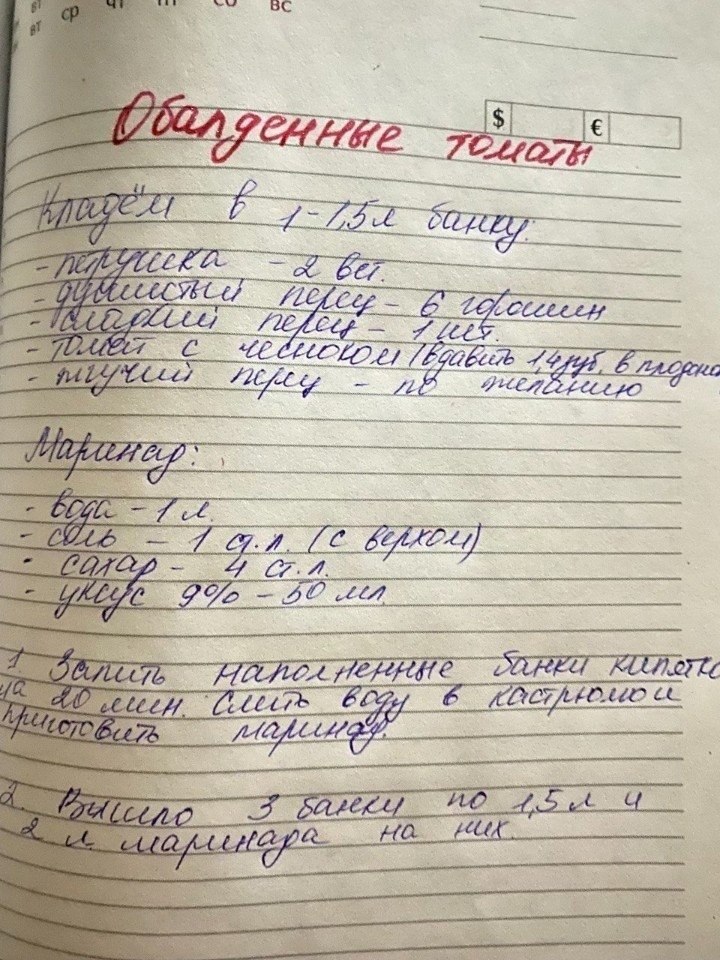 вт
ср
чт
пт
сб
вс
вт
$
€
Обалденные томаты
Кладём в 1-1,5л банку:
- петрушка - 2 вет.
- душистый перец - 6 горошин
- сладкий перец - 1 шт.
- томат с чесноком (вдавить 1,4 зуб. в
- жгучий перец - по желанию
Маринад:
- вода - 1 л.
- соль - 1 ст.л. (с верхом)
- сахар - 4 ст.л.
- уксус 9% - 50 мл.
1 Залить наполненные банки кипятко
на 20 мин. Слить воду в кастрюлю и
приготовить маринад.
2. Вышло 3 банки по 1,5л и
2 л. маринада на них.